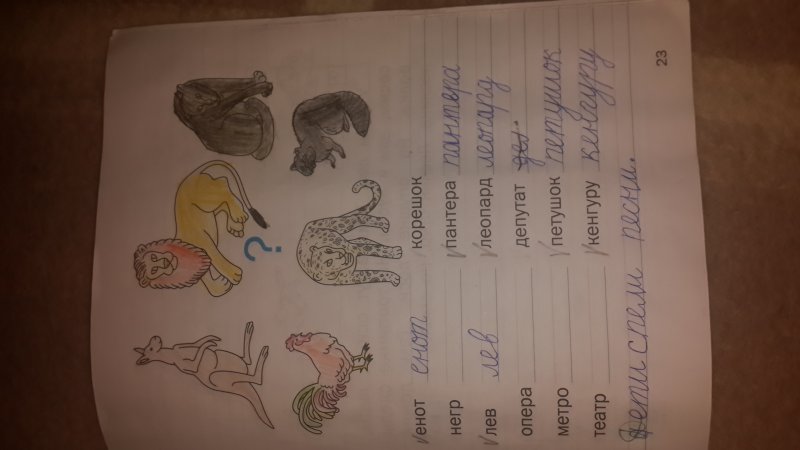 ?
✓енот енот корешок
негр ✓пантера пантера
✓лев лев ✓леопард леопард
опера депутат
метро ✓петушок петушок
театр ✓кенгуру кенгуру
Дети спели песни.
23